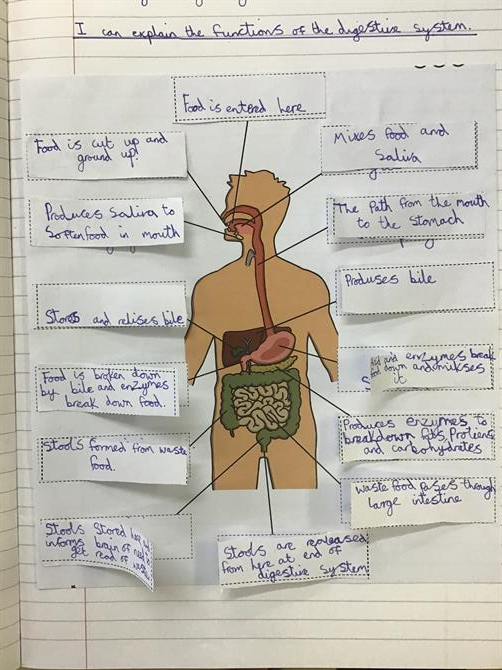 I can explain the functions of the digestive system.
Food is entered here
Food is cut up and
ground up!
Mixes food and
Saliva
Produces Saliva to
Soften food in mouth
The Path from the mouth
to the stomach
Produses bile
Stores and relises bile
and enzymes break
down and mixses
it
Food is broken down
by bile and enzymes
break down food.
Produces enzymes to
breakdown fats, Protiens
and carbohydrates
Stools formed from waste
food.
waste food passes through
large intestine
Stools Stored
informs brain of
get read of
Stools are released
from here at end of
digestive system